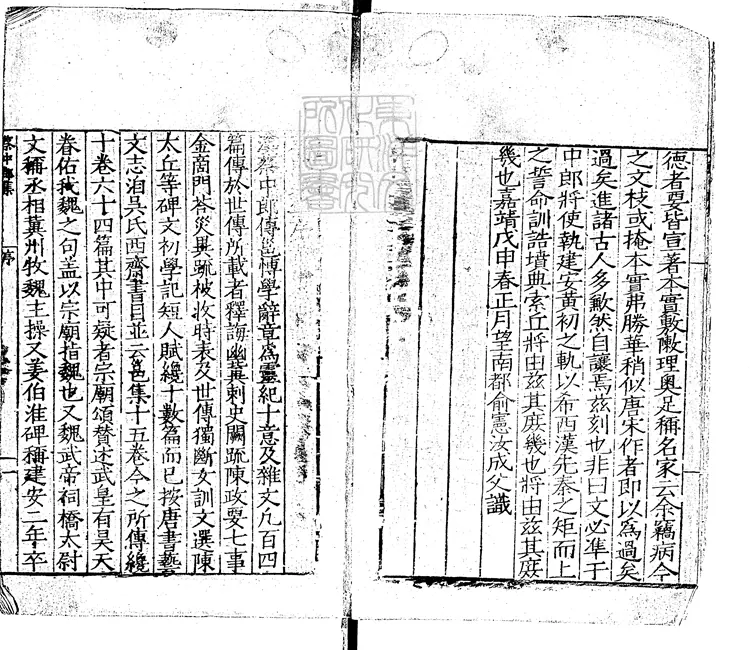 德者要皆宣著本實敷陳理奧足稱名家云余竊病今
之文枝或掩本實弗勝華稍似唐宋作者即以為過矣
過矣進諸古人多歉然自讓焉茲刻也非曰文必準于
中郎將使執建安黃初之軌以希西漢先秦之矩而上
之誓命訓誥墳典索丘將由茲其庶幾也將由茲其庶
幾也嘉靖戊申春正月望南都俞憲汝成父識
漢蔡中郎傳邕博學辭章為靈紀十意及雜文凡百四
篇傳於世傳所載者釋誨幽冀刺史闕疏陳政要七事
金商門荅災異疏被收時表及世傳獨斷女訓文選陳
太丘等碑文初學記短人賦纔十數篇而已按唐書藝
文志洎吳氏西齋書目並云邕集十五卷今之所傳纔
十卷六十四篇其中可疑者宗廟頌贊述武皇有昊天
眷佑我魏之句盖以宗廟指魏也又魏武帝祠橋太尉
文稱丞相冀州牧魏主操又姜伯淮碑稱建安二年卒
蔡中郎集
序